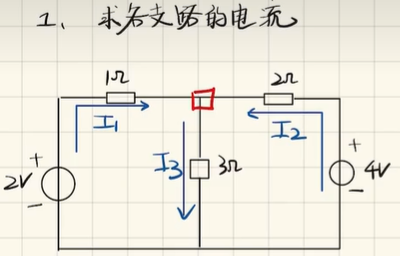 1、求各支路的电流
1Ω
2Ω
I₁
I₂
I₃
3Ω
2V
+
−
+
−
4V